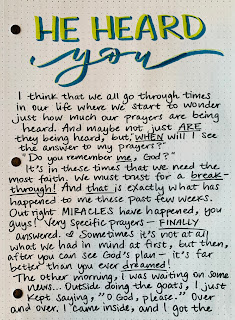 HE HEARD
you
I think that we all go through times
in our life where we start to wonder
just how much our prayers are being
heard. And maybe not just ARE
they being heard, but, WHEN will I see
the answer to my prayers?"
"Do you remember me, God?"
It's in these times that we need the
most faith. We must trust for a break-
through! And that is exactly what has
happened to me these past few weeks.
Out right MIRACLES have happened, you
guys! Very Specific Prayers - FINALLY
answered. & Sometimes it's not at all
what we had in mind at first, but then,
after you can see God's plan - it's far
better than you ever dreamed!
The other morning, I was waiting on some
news... Outside doing the goats, I just
Kept Saying, "O God, please." Over
and over. I came inside, and I got the